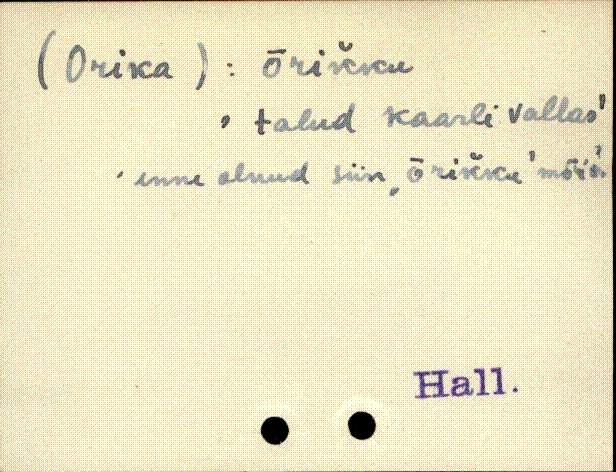 (Orika) : ōriк̆кu
, talud kaarli vallas'
' enne olnud siin „ōriк̆кu"
Hall.